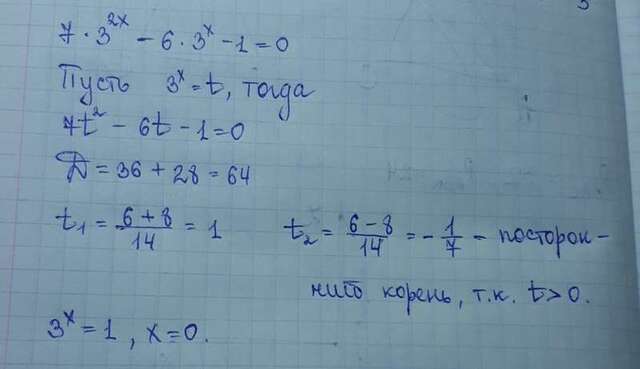 7 · 3^{2x} − 6 · 3^x − 1 = 0
Пусть 3^x = t, тогда
7t² − 6t − 1 = 0
D = 36 + 28 = 64
t₁ = (6 + 8)/14 = 1 t₂ = (6 − 8)/14 = −1/7 − посторон-
ний корень, т.к. t > 0.
3^x = 1, x = 0.